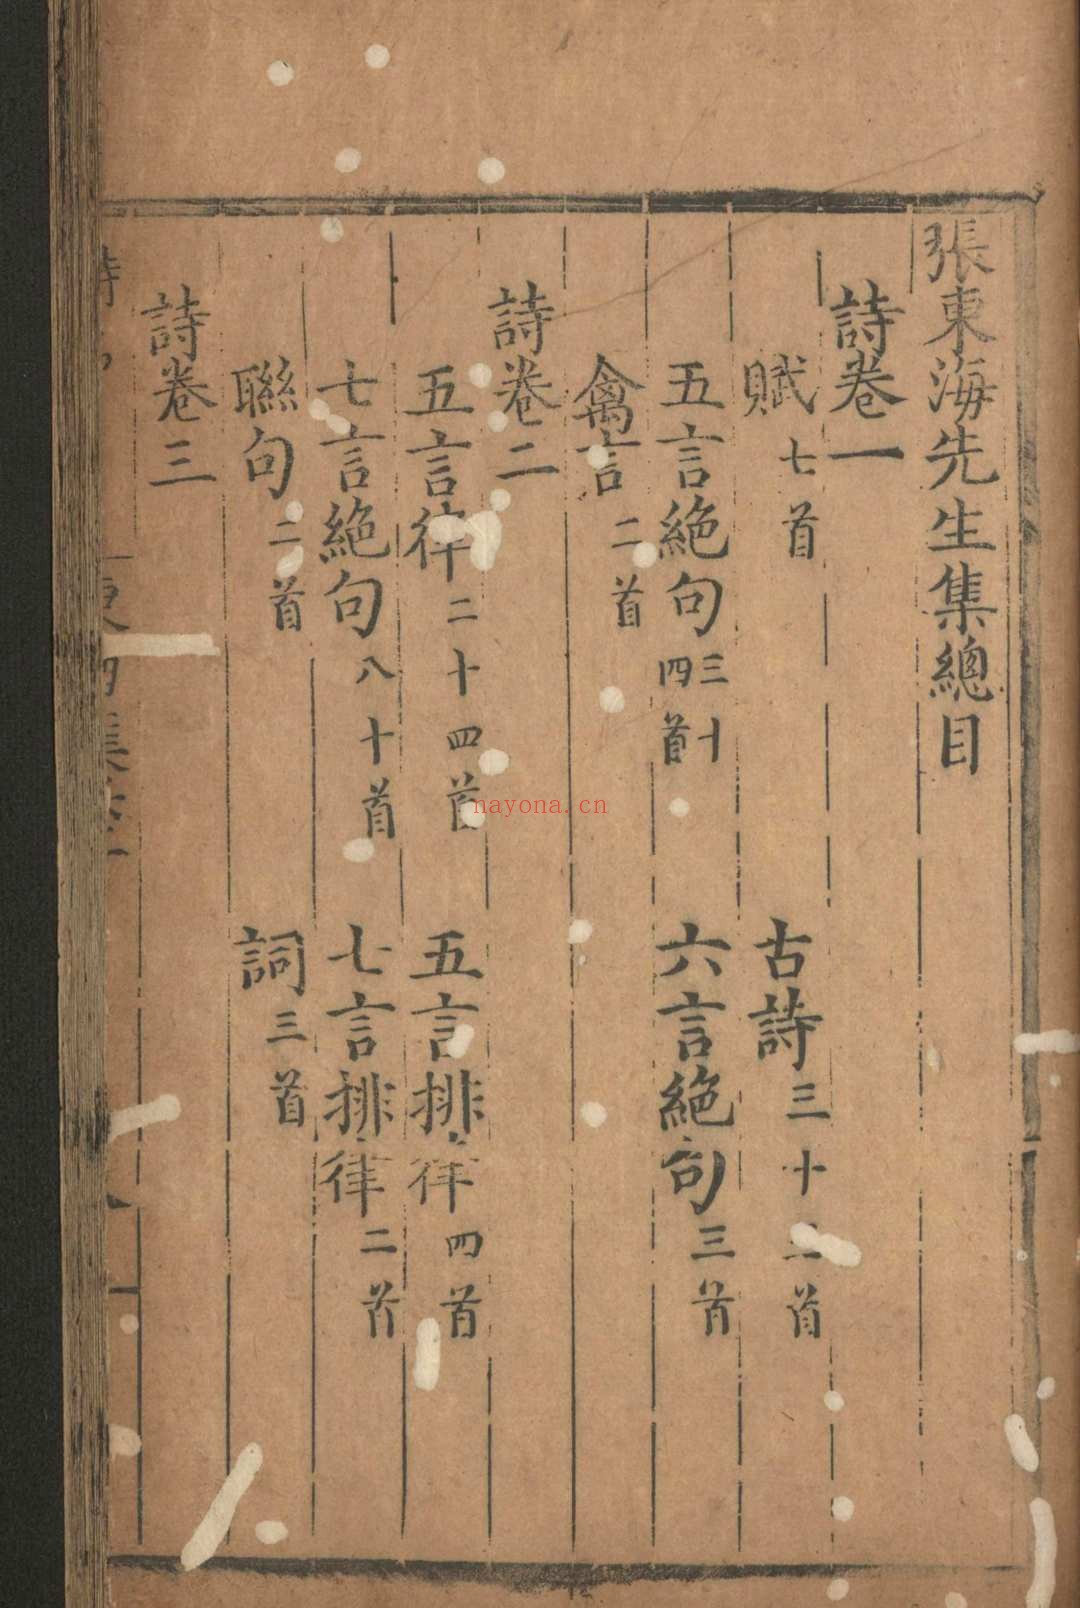 張東海先生集總目
詩卷一
賦七首 古詩三十二首
五言絶句三十四首 六言絶句三首
禽言二首
詩卷二
五言律二十四首 五言排律四首
七言絶句八十首 七言排律二首
聯句二首 詞三首
詩卷三
nayona.cn